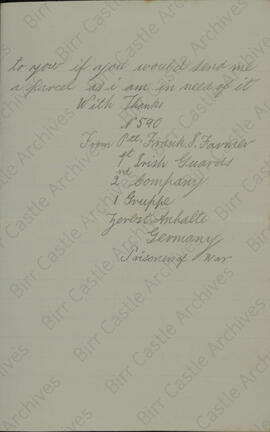 to you if you would send me
a parcel as i am in need of it
With Thanks
N 590
From Ptt. Frank S.
1st Irish Guards
2nd Company
1 Gruppe
Zerbst Anhalte
Germany
Prisoner of War
Birr Castle Archives